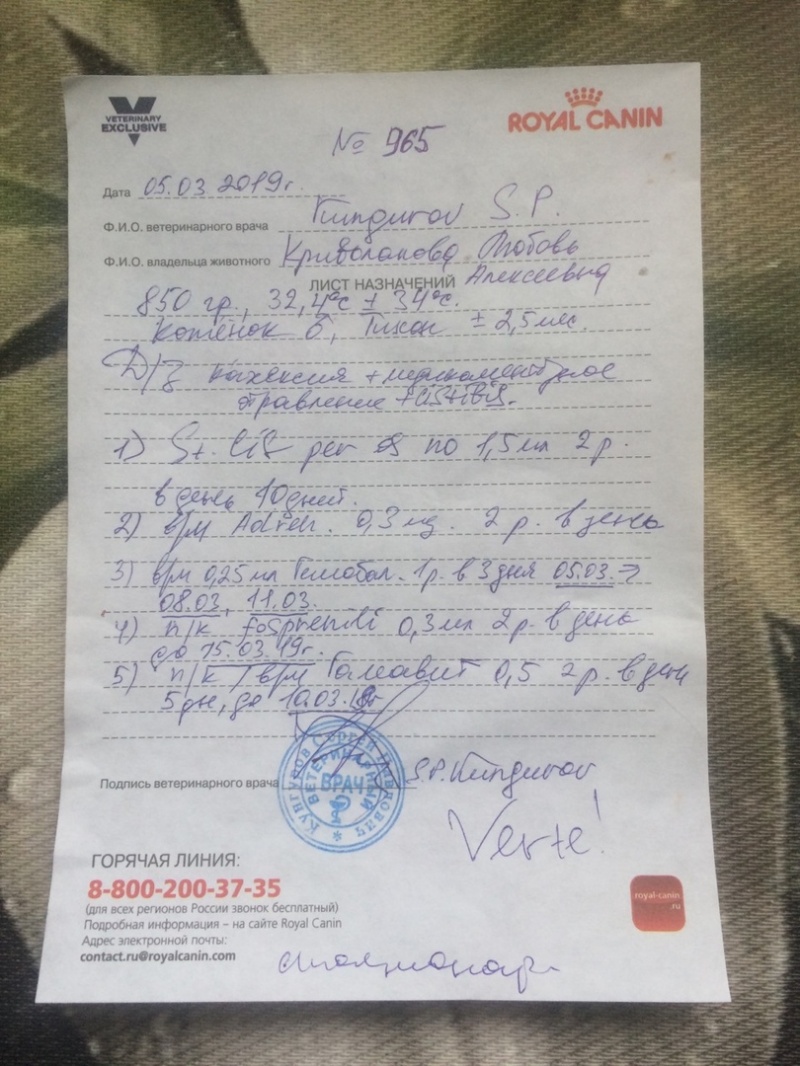 VETERINARY
EXCLUSIVE
ROYAL CANIN
№ 965
Дата 05.03 2019г.
Ф.И.О. ветеринарного врача S.P.
Ф.И.О. владельца животного Любовь
ЛИСТ НАЗНАЧЕНИЙ Алексеевна
850 гр., 32,4°C ± 34°C.
Котёнок б, Тихон ± 2,5 мес.
D/Z кахексия + медикаментозное
отравление +
1) St. per os по 1,5 мл 2 р.
в день 10 дней.
2) в/м 0,3 2 р. в день
3) в/м 0,25 мл Гемобал. 1 р. в 3 дня 05.03. →
08.03, 11.03.
4) п/к fosprenili 0,3 мл 2 р. в день
до 15.03.19г.
5) п/к / в/м Гамавит 0,5 2 р. в день
5 дне, до 10.03.19г
Подпись ветеринарного врача S.P.
ВЕТЕРИНАРНЫЙ
ВРАЧ
Verte!
ГОРЯЧАЯ ЛИНИЯ:
8-800-200-37-35
(для всех регионов России звонок бесплатный)
Подробная информация – на сайте Royal Canin
Адрес электронной почты:
contact.ru@royalcanin.com
royal-canin
.ru
стационар